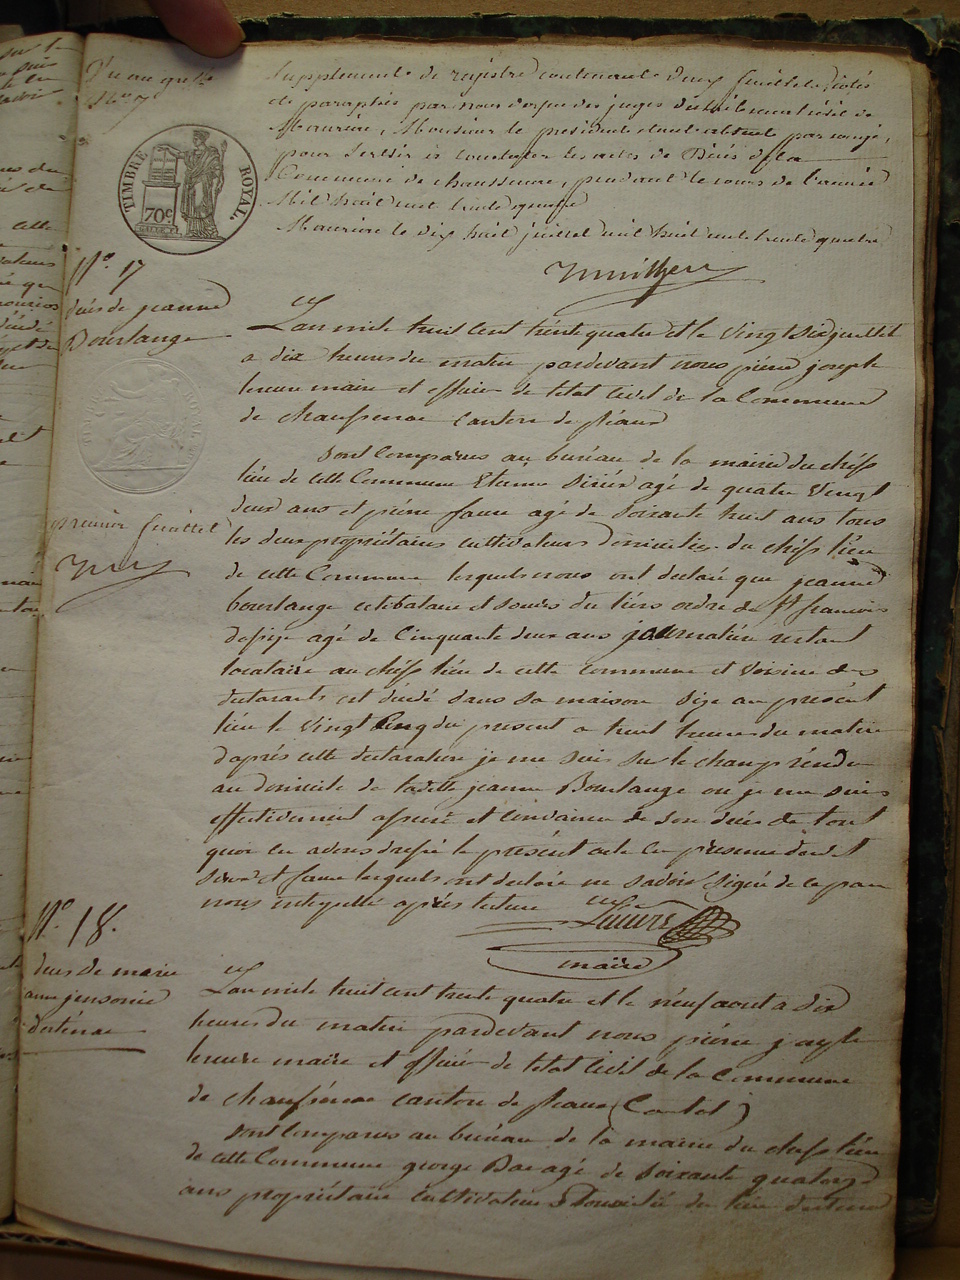 Supplement de registre contenant deux feuillets cotés
et paraphés par nous doyen des juges du tribunal civil de
Mauriac, Monsieur le président étant absent par congé,
pour servir à constater les actes de Décès de la
Commune de chaussenac, pendant le cours de l'année
Mil huit cent trente quatre
Mauriac le dix huit juillet mil huit cent trente quatre
TIMBRE ROYAL.
70c
N°. 17
décès de jeanne
Bourlange
L'an mile huit cent trente quatre et le vingt six juillet
a dix heures du matin pardevant nous pierre joseph
maire et officier de l'état Civil de la Commune
de chaussenac canton de pleaux
sont Comparus au bureau de la mairie du cheff
lieu de cette Commune Etienne agé de quatre vingt
deux ans et pierre faure agé de soixante huit ans tous
les deux propriétaires cultivateurs domiciliés du cheff lieu
de cette Commune lesquels nous ont declaré que jeanne
bourlange celibataire et soeur du tiers ordre de St francois
dasize agé de Cinquante deux ans restant
locataire au cheff lieu de cette commune et voisine des
declarants est decedé dans sa maison size au présent
lieu le vingt Cinq du present a huit heures du matin
d'après cette declaration je me suis sur le champ rendu
au domicile de ladite jeanne Bourlange ou je me suis
effectivement assuré et convaincu de son décès de tout
quoi en avons dressé le présent acte en presence desdits
et faure lesquels ont declaré ne savoir signer de ce par
nous interpellé après lecture
maire
premier feuillet
N°. 18.
deces de marie
anne jensonie
d'ostenac
L'an mile huit cent trente quatre et le neuf aout a dix
heures du matin pardevant nous pierre joseph
maire et officier de l'état Civil de la Commune
de chaussenac canton de pleaux (Cantal)
sont Comparus au bureau de la mairie du cheff lieu
de cette Commune george Bac agé de soixante quatorze
ans propriétaire cultivateur domicilié du lieu d'ostenac